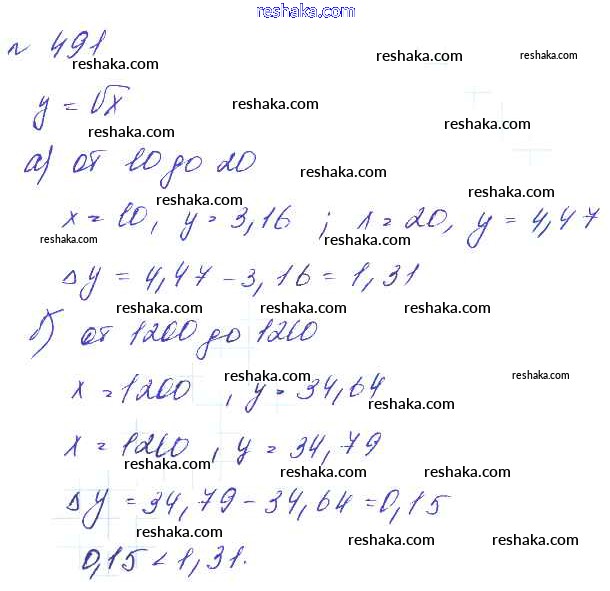 www.reshaka.com
№ 491
reshaka.com reshaka.com
y = √x
reshaka.com reshaka.com reshaka.com
а) от 10 до 20
reshaka.com reshaka.com reshaka.com
x = 10, y = 3,16 ; x = 20, y = 4,47
reshaka.com reshaka.com
Δy = 4,47 - 3,16 = 1,31
reshaka.com reshaka.com reshaka.com
б) от 1200 до 1210
reshaka.com reshaka.com
x = 1200 , y = 34,64
reshaka.com
x = 1210 , y = 34,79
reshaka.com reshaka.com reshaka.com
Δy = 34,79 - 34,64 = 0,15
reshaka.com reshaka.com reshaka.com
0,15 < 1,31.
reshaka.com reshaka.com